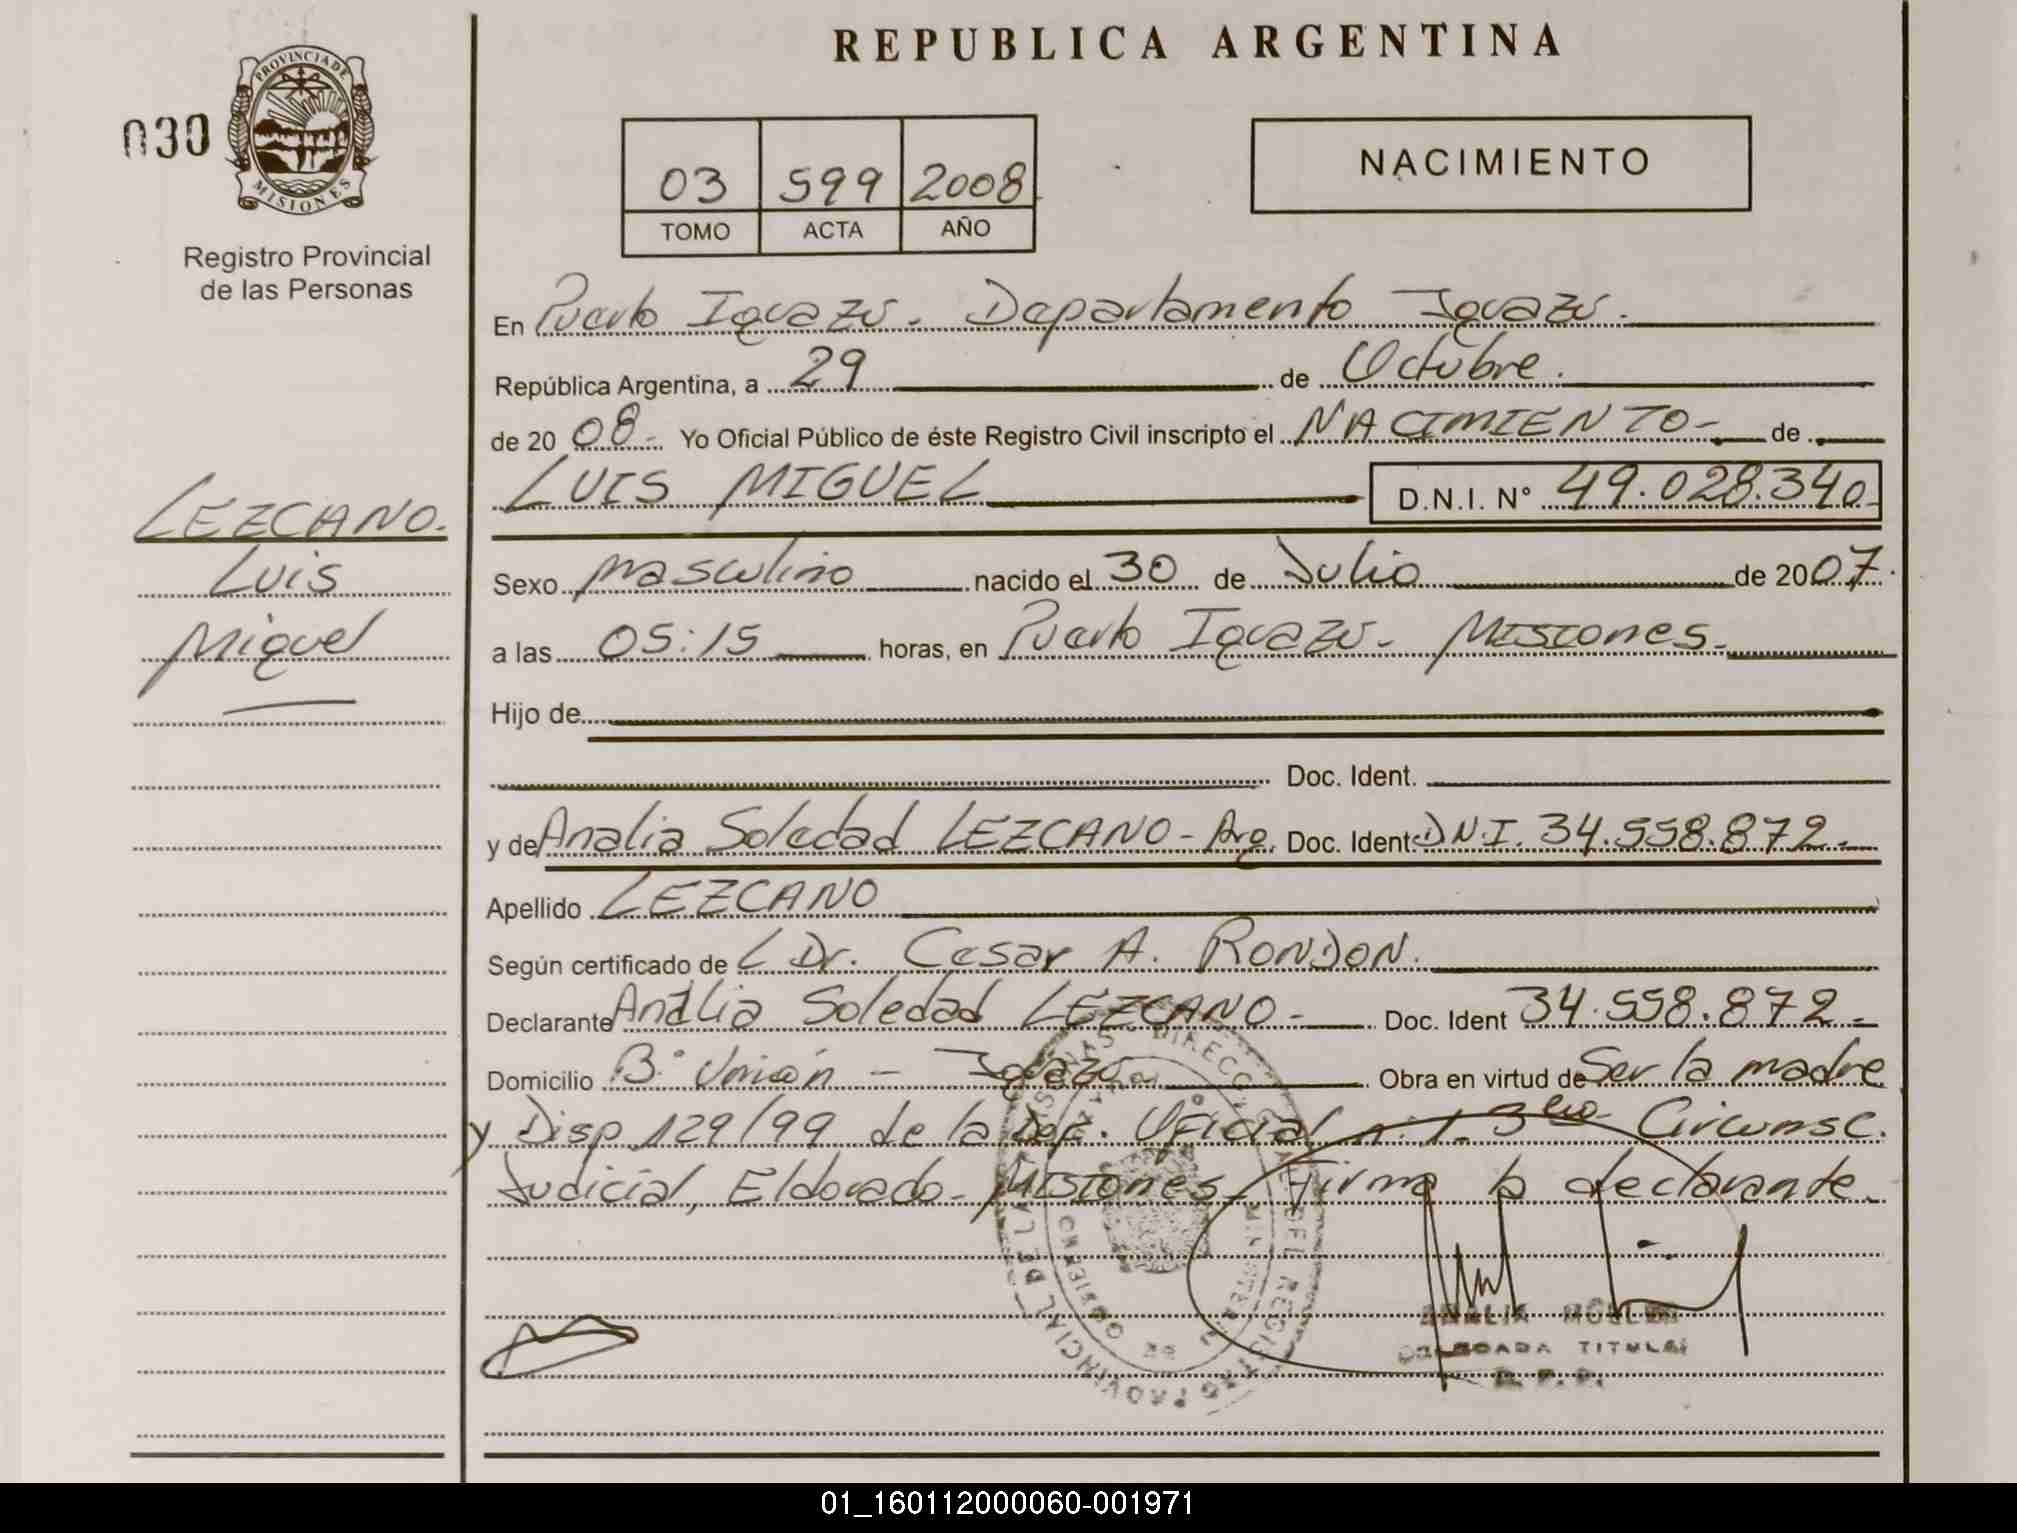 REPUBLICA ARGENTINA
030
PROVINCIA DE
MISIONES
Registro Provincial
de las Personas
03 599 2008
TOMO ACTA AÑO
NACIMIENTO
En Puerto Iguazú. Departamento Iguazú.
República Argentina, a 29 de Octubre.
de 20 08- Yo Oficial Público de éste Registro Civil inscripto el NACIMIENTO- de
LUIS MIGUEL D.N.I. N° 49.028.340
LEZCANO.
Luis
Miguel
Sexo masculino nacido el 30 de Julio de 2007.
a las 05:15 horas, en Puerto Iguazú- Misiones-
Hijo de
Doc. Ident.
y de Analia Soledad LEZCANO- Arg. Doc. Ident. DN.I. 34.558.872-
Apellido LEZCANO
Según certificado de L Dr. Cesar A. RONDON.
Declarante Analia Soledad LEZCANO- Doc. Ident 34.558.872-
Domicilio B° Unión - Iguazú Obra en virtud de Ser la madre
y Disp 129/99 de la Def. Oficial n. 1- 3era- Circunsc.
Judicial, Eldorado- Misiones- Firma la declarante.
DIRECC. GRAL. DEL REGISTRO PROVINCIAL DE LAS PERSONAS
ANALIA
DELEGADA TITULAR
R.P.P.
01_160112000060-001971